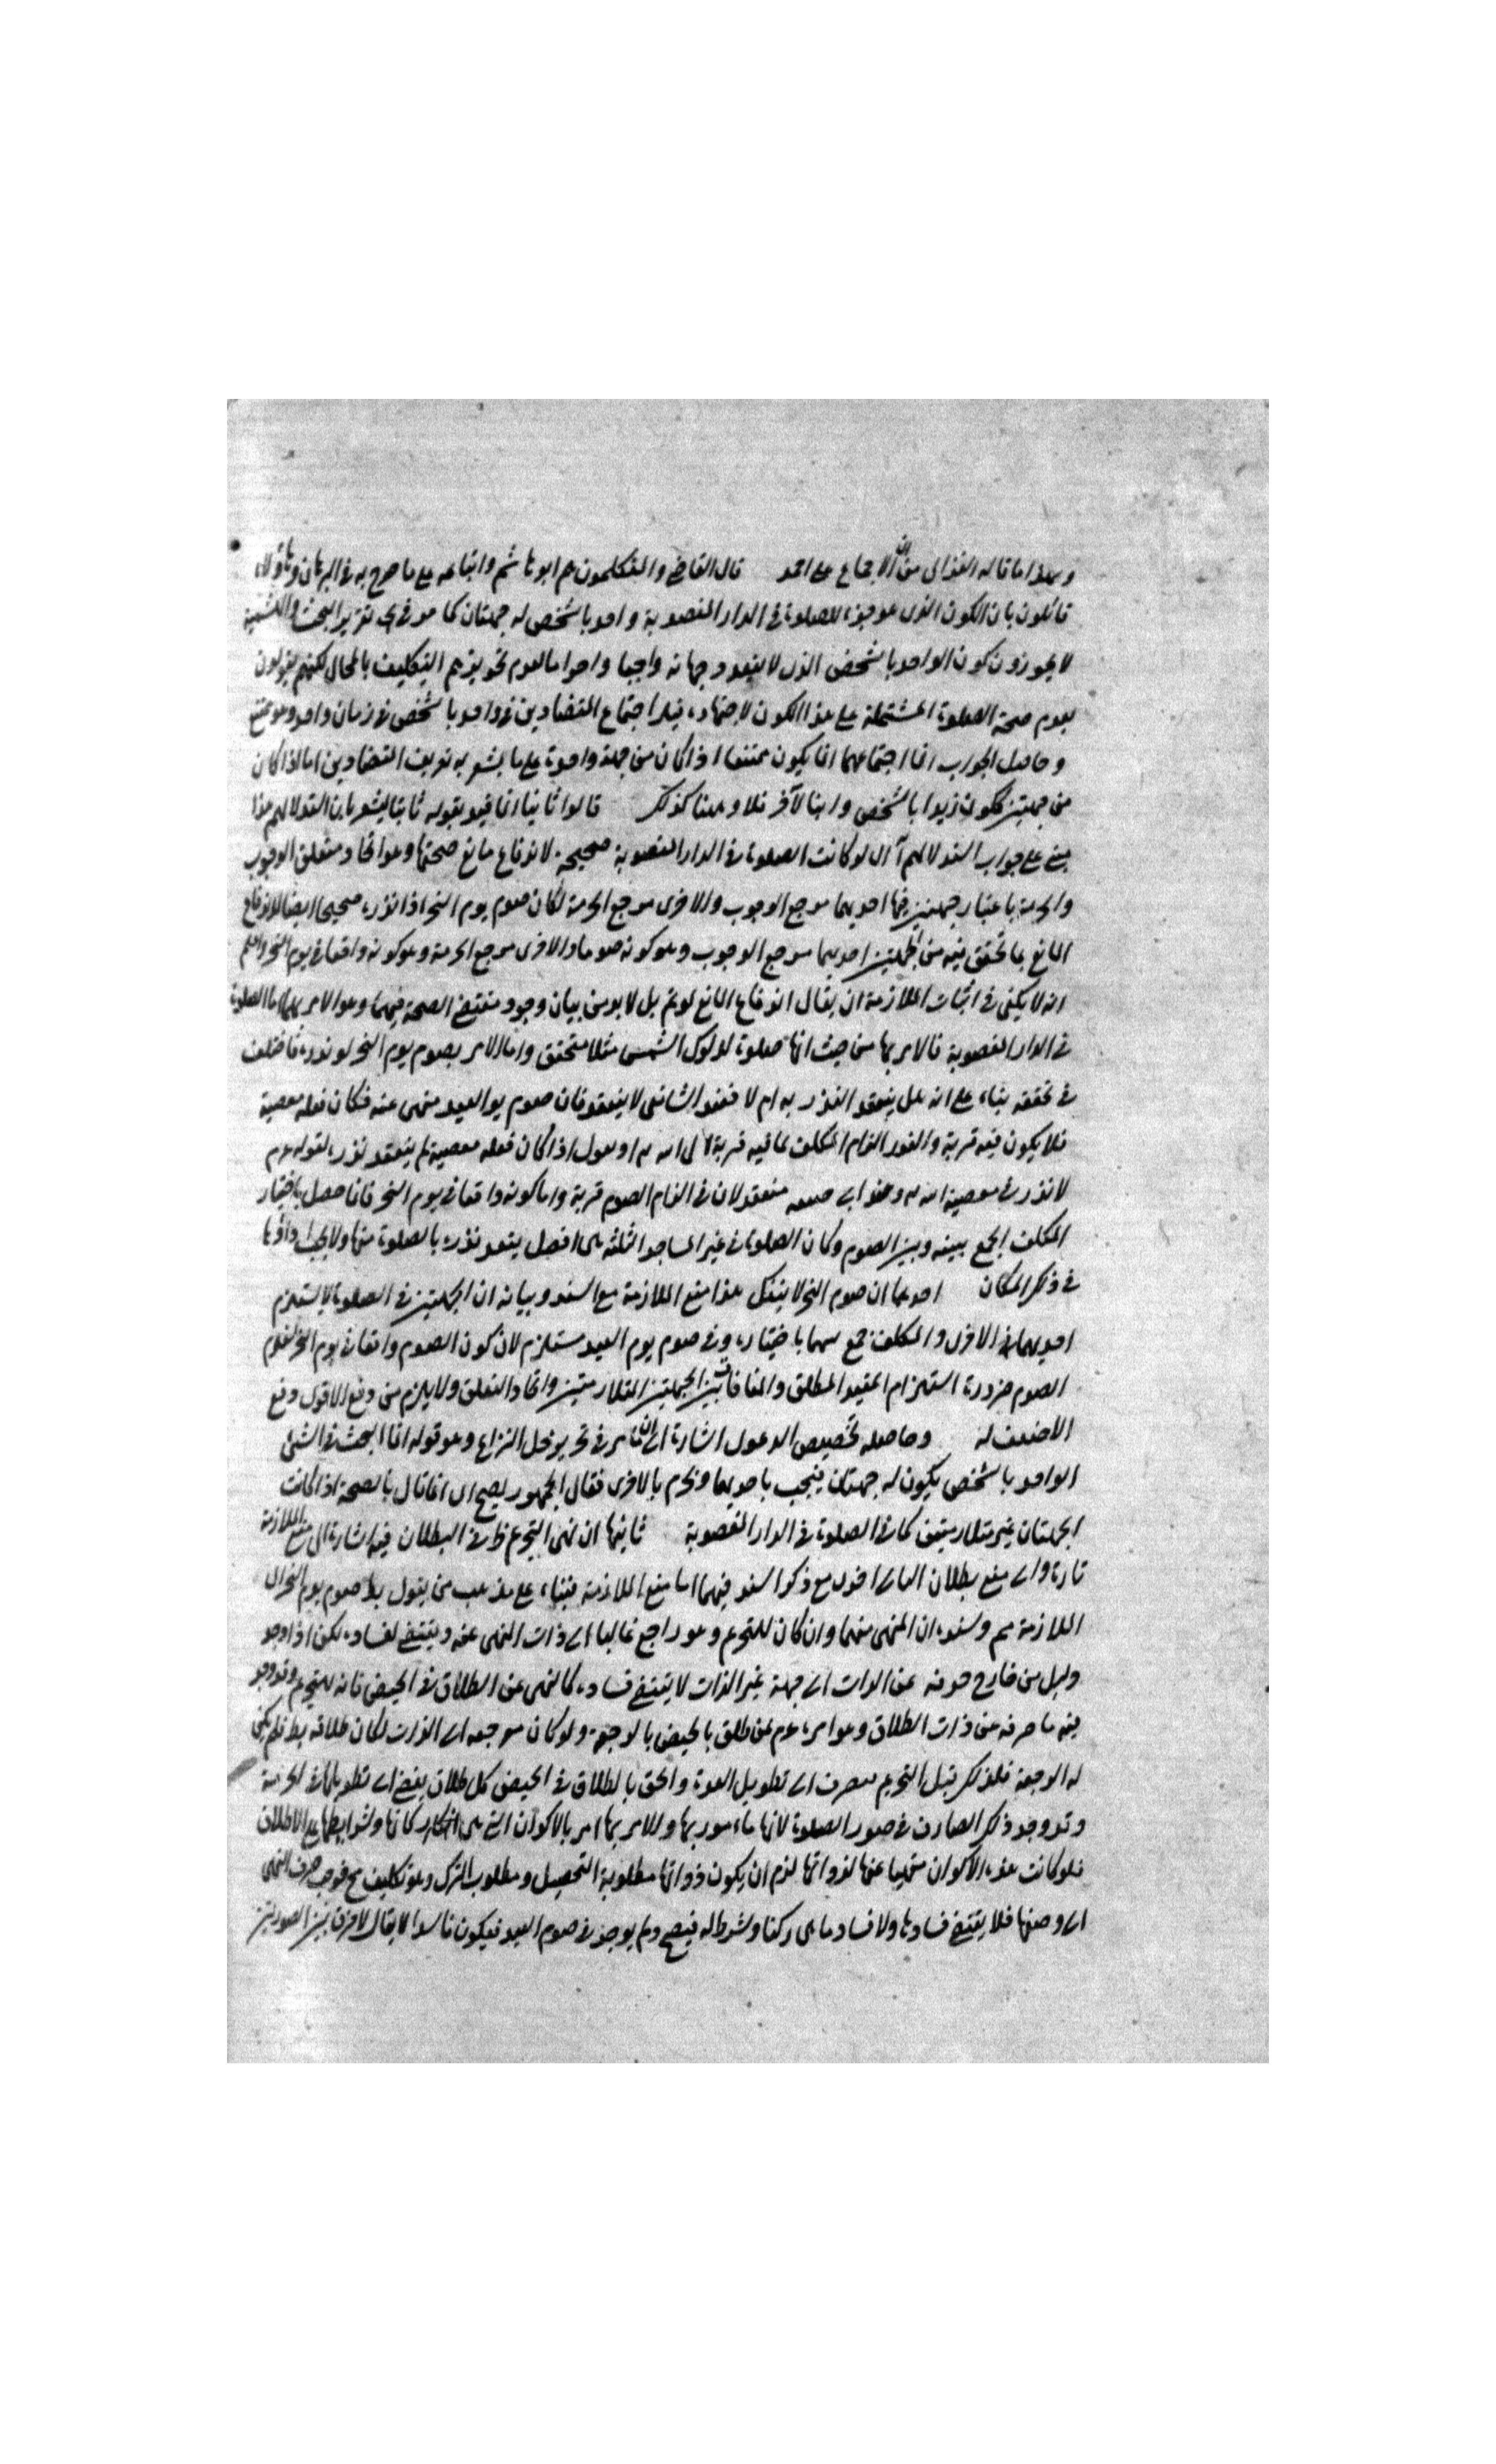 وبهذا ما قاله الغزالى من ان الاجماع على احمد قال القاضى والمتكلمون هم ابو هاشم واتباعه على ما صرح به فى البرهان وهؤلاء
قائلون بان الكون الذى هو جزء للصلوة فى الدار المغصوبة واحد بالشخص له جهتان كما مر فى تحرير البحث
لا يجوزون كون الواحد بالشخص الذى لا يتعدد جهاته واجبا وحراما لعدم تجويزهم التكليف بالمحال لكنهم يقولون
بعدم صحة الصلوة المشتملة على هذا الكون لاتحاد فيلزم اجتماع المتضادين فى واحد بالشخص فى زمان واحد وهو ممتنع
وحاصل الجواب ان اجتماعهما انما يكون ممتنعا اذا كان من جهة واحدة على ما يشعر به تعريف المتضادين اما اذا كان
من جهتين ككون زيد ابا لشخص وابنا لآخر فلا وههنا كذلك قالوا ثانيا انما قيد بقوله ثانيا ليشعر بان استدلالهم هذا
مبنى على جواب استدلالهم اى لو كانت الصلوة فى الدار المغصوبة صحيحة لاندفاع مانع صحتها وهو اتحاد متعلق الوجوب
والحرمة باعتبار جهتين فيها احديهما مرجع الوجوب والاخرى مرجع الحرمة لكان صوم يوم النحر اذا نذره صحيحا ايضا لاندفاع
المانع بما تحقق فيه من الجهتين احديهما مرجع الوجوب وهو كونه صوما والاخرى مرجع الحرمة وهو كونه واقعا فى يوم النحر واعلم
انه لا يكفى فى اثبات الملازمة ان يقال اندفاع المانع لو تم بل لا بد من بيان وجود مقتضى الصحة فيهما وهو الامر بهما اما الصلوة
فى الدار المغصوبة فالامر بها من حيث انها صلوة لدلوك الشمس مثلا متحقق واما الامر بصوم يوم النحر لو نذره فاختلف
فى تحققه بناء على انه هل ينعقد النذر به ام لا فعند الشافعى لا ينعقد فان صوم يوم العيد منهى عنه فكان فعله معصية
فلا يكون فيه قربة والنذر التزام المكلف بما فيه قربة الى الله او نقول اذا كان فعله معصية لم ينعقد نذره لقوله عم
لا نذر فى معصية الله وعند ابى حنيفه منعقد لان فى التزام الصوم قربة واما كونه واقعا فى يوم النحر فانما حصل باختيار
المكلف الجمع بينه وبين الصوم وكان الصلوة فى غير المساجد الثلثة هى افضل ينعقد نذره بالصلوة فيها ولا يجب اداؤها
فى ذلك المكان احديهما ان صوم النحر لا ينفك هذا منع الملازمة مع السند وبيانه ان الجهتين فى الصلوة لا يستلزم
احديهما الاخرى والمكلف جمع بينهما باختياره وفى صوم يوم العيد مستلزم لان كون الصوم واقعا فى يوم النحر يستلزم
الصوم ضرورة استلزام المقيد المطلق والمنافات بين الجهتين المتلازمتين واتحاد المتعلق ولا يلزم من دفع الاقوى دفع
الاضعف له وحاصله تخصيص الدعوى اشارة الى ما مر فى تحرير محل النزاع وهو قوله انما البحث فى الشئ
الواحد بالشخص يكون له جهتان فيجب باحديهما ويحرم بالاخرى فقال الجمهور يصح اى انما قال بالصحة اذا كانت
الجهتان غير متلازمتين كما فى الصلوة فى الدار المغصوبة ثانيها ان نهى التحريم ظ فى البطلان فيه اشارة الى منع الملازمة
تارة والى منع بطلان التالى اخرى مع ذكر السند فيهما اما منع الملازمة فبناء على مذهب من يقول بط صوم يوم النحر اى
الملازمة مم وسنده ان المنهى منهما وان كان للتحريم وهو راجع غالبا الى ذات المنهى عنه ويقتضى لفساده لكن اذا وجد
دليل من خارج صرفه عن الذات الى جهة غير الذات لا يقتضى فساده كالنهى عن الطلاق فى الحيض فانه للتحريم وقد وجد
فيه ما صرفه عن ذات الطلاق وهو امره عم لمن طلق بالحيض بالرجعة ولو كان مرجعه الى الذات لكان طلاقه بط فلم يكن
له الرجعة فلذلك قيل التحريم يصرف الى تطويل العدة والحق بالطلاق فى الحيض كل طلاق يفضى الى تطويلها فى الحرمة
وقد وجد ذلك الصارف فى صور الصلوة لانها مأمور بها والامر بها امر بالاكوان التى هى اركانها وشرايطها على الاطلاق
فلو كانت هذه الاكوان منهيا عنها لذواتها لزم ان يكون ذواتها مطلوبة التحصيل ومطلوب الترك وهو تكليف مح فوجب صرف النهى
الى وصفها فلا يقتضى فسادها ولا فساد ما هى ركنا وشرط له فيصح ولم يوجد فى صوم العيد فيكون فاسدا لا يقال لا فرق بين الصورتين